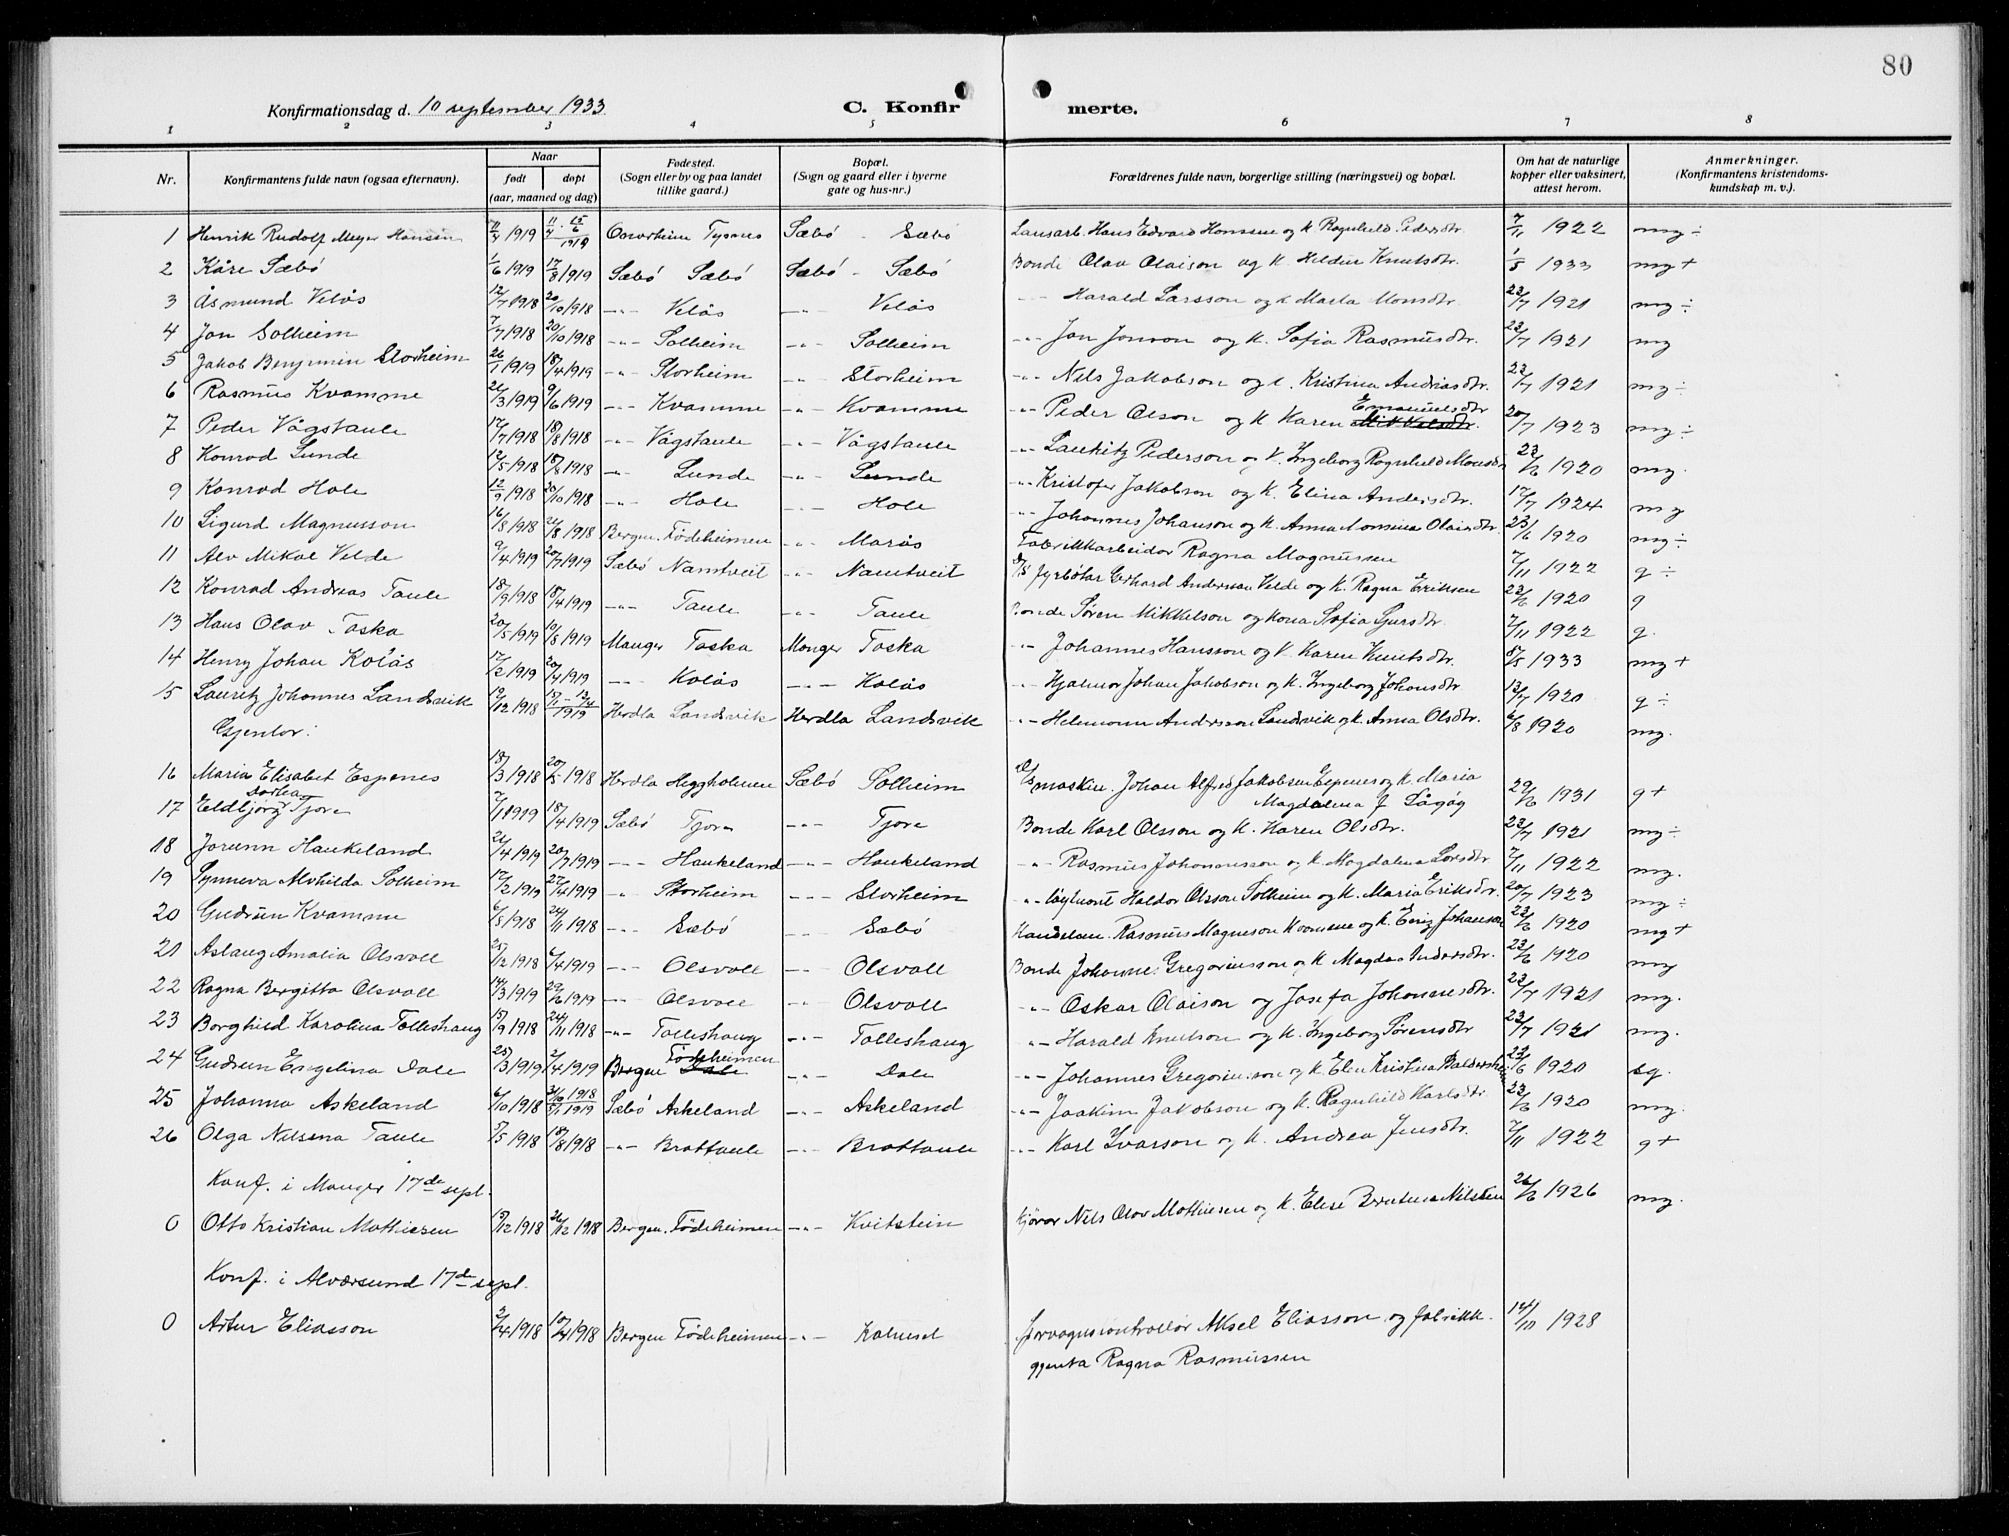 80
Konfirmationsdag d. 10 september 1933 C. Konfir merte.
1 2 3 4 5 6 7 8
Nr. Konfirmantens fulde navn (ogsaa efternavn). Naar født døpt (aar, maaned og dag) Fødested. (Sogn eller by og paa landet tillike gaard.) Bopæl. (Sogn og gaard eller i byerne gate og hus-nr.) Forældrenes fulde navn, borgerlige stilling (næringsvei) og bopæl. Om hat de naturlige kopper eller vaksinert, attest herom. Anmerkninger. (Konfirmantens kristendoms-kundskap m. v.).
1 Henrik Rudolf Meyer Hansen 11/4 1919 Tysnes Sæbø - Sæbø Hans Edvard Hanssen og k. Ragnhild Pedersdtr. 7/11 1922 mg ÷
2 Kåre Sæbø 1/6 1919 17/8 1919 Sæbø Sæbø Sæbø - Sæbø Bonde Olav Olaison og k. Knutsdtr. 1/5 1933 mg +
3 Åsmund Velås 12/7 1918 20/10 1918 -"- Velås -"- Velås -"- Harald Larsson og k. Marta Monsdtr. 23/7 1921 mg ÷
4 Jon Solheim 7/7 1918 20/10 1918 -"- Solheim -"- Solheim -"- Jon Jonson og k. Sofia Rasmusdtr. 23/7 1921 mg
5 Jakob Benjamin Storheim 26/1 1919 18/4 1919 -"- Storheim -"- Storheim -"- Nils Jakobson og k. Kristina Andriasdtr. 23/7 1921 mg ÷
6 Rasmus Kvamme 21/3 1919 9/6 1919 -"- Kvamme -"- Kvamme -"- Peder Olson og k. Karen Emanuelsdtr. 20/7 1923 mg ÷
7 Peder Vågstaule 17/7 1918 18/8 1918 -"- Vågstaule -"- Vågstaule -"- Lauritz Pederson og k. Ingeborg Ragnhild Monsdtr. 23/6 1920 mg.
8 Konrad Lunde 12/5 1918 18/8 1918 -"- Lunde -"- Lunde -"- Kristofer Jakobson og k. Elina Andersdtr. 17/7 1924 mg
9 Konrad Hole 12/9 1918 20/10 1918 -"- Hole -"- Hole -"- Johannes Johanson og k. Anna Monsina Olaisdtr. 23/6 1920 mg ÷
10 Sigurd Magnusson 16/8 1918 21/8 1918 Bergen. Fødeheimen -"- Marås Fabrikkarbeidar Ragna Magnussen 7/11 1922 g ÷
11 Alv Mikal Velde 9/4 1919 20/7 1919 Sæbø Namtveit -"- Namtveit D/S fyrbøtar Gerhard Anderssen Velde og k. Ragna Eriksen 23/6 1920 g
12 Konrad Andreas Taule 18/9 1918 18/4 1919 -"- Taule -"- Taule Bonde Søren Mikkelson og kona Sofia Gursdtr. 7/11 1922 g.
13 Hans Olav Toska 20/5 1919 10/8 1919 Manger Toska Manger Toska -"- Johannes Hansson og k. Karen Knutsdtr. 8/5 1933 mg +
14 Henry Johan Kolås 17/2 1919 20/4 1919 -"- Kolås -"- Kolås -"- Hjalmar Johan Jakobson og k. Ingeborg Johansdtr. 13/7 1920 g ÷
15 Lauritz Johannes Landsvik 19/12 1918 1919 Herdla Landsvik Herdla Landsvik -"- Andersson Landsvik og k. Anna Olsdtr. 6/8 1920 mg.
Gjentor:
16 Maria Elisabet Espenes 18/3 1918 20/5 1918 Herdla Heggholmen Sæbø Solheim D/S maskin. Johan Alfred Jakobsen Espenes og k. Maria Magdalena f. Lågøy 29/6 1931 g +
17 Eldbjørg Dortea Tjore 7/1 1919 18/4 1919 Sæbø Tjore -"- Tjore Bonde Karl Olsson og k. Karen Olsdtr. 23/7 1921 mg ÷
18 Jorunn Haukeland 21/4 1919 20/7 1919 -"- Haukeland -"- Haukeland -"- Rasmus Johannesson og k. Magdalena Larsdtr. 7/11 1922 mg.
19 Synneva Alvhilda Solheim 17/2 1919 27/4 1919 -"- Storheim -"- Storheim -"- Haldor Olsson Solheim og k. Maria Eriksdtr. 20/7 1923 mg ÷
20 Gudrun Kvamme 6/8 1918 24/11 1918 -"- Sæbø -"- Sæbø Handelsm. Rasmus Magneson Kvamme og k. Johanson 23/6 1920 mg +
21 Aslaug Amalia Olsvoll 25/12 1918 6/4 1919 -"- Olsvoll -"- Olsvoll Bonde Johannes Gregoriusson og k. Magda Andersdtr. 23/6 1920 mg
22 Ragna Bergitta Olsvoll 14/3 1919 29/6 1919 -"- Olsvoll -"- Olsvoll -"- Oskar Olaison og Josefa Johannesdtr. 23/7 1921 mg.
23 Borghild Karolina Tolleshaug 15/9 1918 24/11 1918 -"- Tolleshaug -"- Tolleshaug -"- Harald Knutson og k. Ingeborg Sørensdtr. 23/7 1921 mg.
24 Gudrun Engelina Dale 25/3 1919 2/4 1919 Bergen Fødeheimen -"- Dale -"- Johannes Gregoriusson og k. Elen Kristina Baldersheim 23/6 1920 sg.
25 Johanna Askeland 6/10 1918 31/10 1918 5/1 1919 Sæbø Askeland -"- Askeland -"- Joakim Jakobson og k. Ragnhild Karlsdtr. 23/6 1920 mg.
26 Olga Nilsena Taule 7/5 1918 18/8 1918 -"- Brattaule -"- Brattaule -"- Karl Ivarson og k. Andrea Jensdtr. 7/11 1922 g +
Konf. i Manger 17de sept.
0 Otto Kristian Mathiesen 15/12 1918 26/12 1918 Bergen. Fødeheimen -"- Kvitstein Kjørar Nils Olav Mathiesen og k. Elise Nilsen 26/6 1926 mg.
Konf. i Alversund 17de sept.
0 Artur Eliasson 2/4 1918 10/4 1918 Bergen Fødeheimen -"- Aksel Eliasson og fabrikk- 14/10 1928
gjenta Ragna Rasmussen